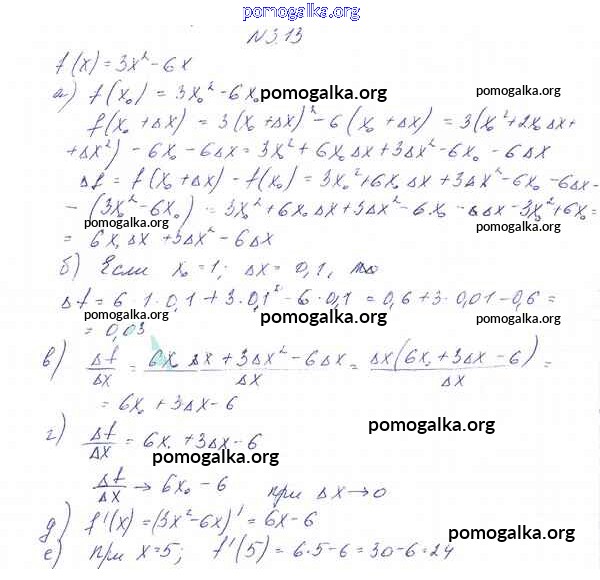 pomogalka.org
N 3.13
f(x) = 3x² - 6x
а) f(x₀) = 3x₀² - 6x₀ pomogalka.org pomogalka.org
f(x₀ + Δx) = 3(x₀ + Δx)² - 6(x₀ + Δx) = 3(x₀² + 2x₀Δx +
+ Δx²) - 6x₀ - 6Δx = 3x₀² + 6x₀Δx + 3Δx² - 6x₀ - 6Δx
pomogalka.org pomogalka.org
Δf = f(x₀ + Δx) - f(x₀) = 3x₀² + 6x₀Δx + 3Δx² - 6x₀ - 6Δx -
- (3x₀² - 6x₀) = 3x₀² + 6x₀Δx + 3Δx² - 6x₀ - 6Δx - 3x₀² + 6x₀ =
pomogalka.org pomogalka.org
= 6x₀Δx + 3Δx² - 6Δx
б) Если x₀ = 1; Δx = 0,1, то
Δf = 6 · 1 · 0,1 + 3 · 0,1² - 6 · 0,1 = 0,6 + 3 · 0,01 - 0,6 =
pomogalka.org pomogalka.org pomogalka.org
= 0,03
в) Δf/Δx = (6x₀Δx + 3Δx² - 6Δx)/Δx = Δx(6x₀ + 3Δx - 6)/Δx =
= 6x₀ + 3Δx - 6
pomogalka.org
г) Δf/Δx = 6x₀ + 3Δx - 6
pomogalka.org
Δf/Δx → 6x₀ - 6 при Δx → 0
д) f'(x) = (3x² - 6x)' = 6x - 6
pomogalka.org
е) при x = 5; f'(5) = 6 · 5 - 6 = 30 - 6 = 24